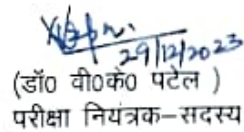 29/12/2023
(डॉ0 वी0के0 पटेल )
परीक्षा नियंत्रक–सदस्य